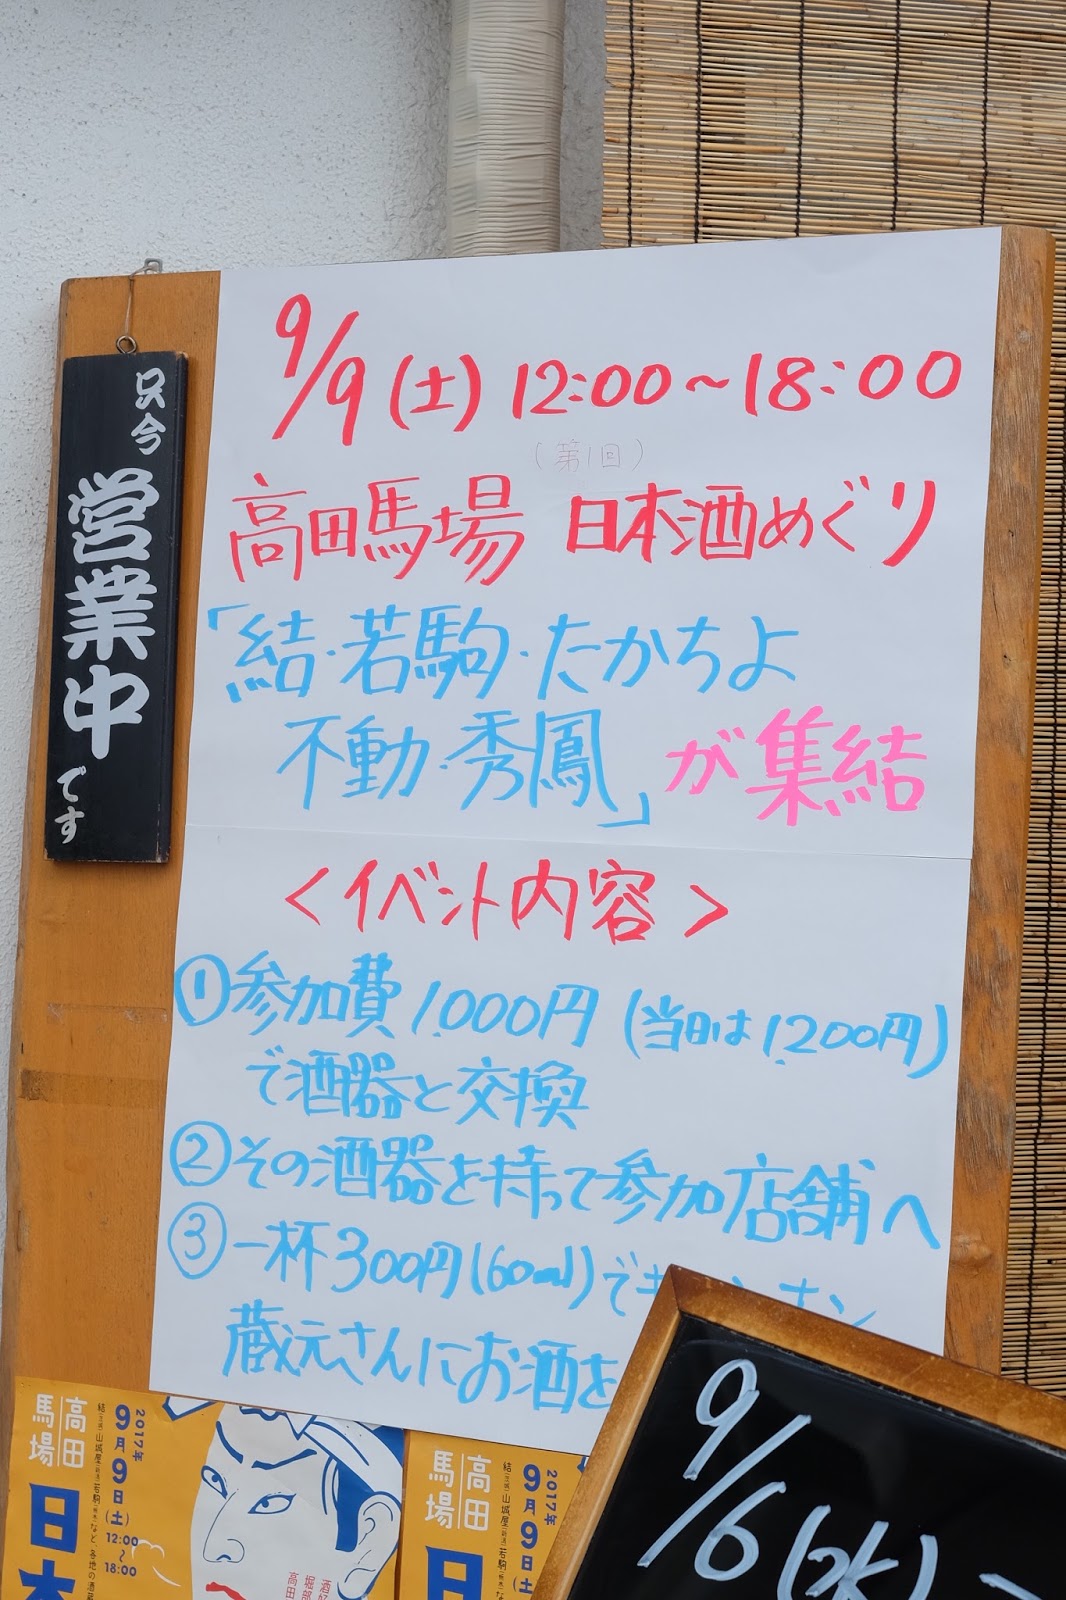 只今
営業中
です
9/9(土) 12:00~18:00
(第1回)
高田馬場 日本酒めぐり
「結・若駒・たかちよ
不動・秀鳳」が集結
<イベント内容>
①参加費1.000円(当日は1.200円)
で酒器と交換
②その酒器を持って参加店舗へ
③一杯300円(60ml)で
蔵元さんにお酒を
高田
馬場
2017年
9月9日(土)
12:00
~
18:00
高田
馬場
2017年
9月9日
9/6(水)